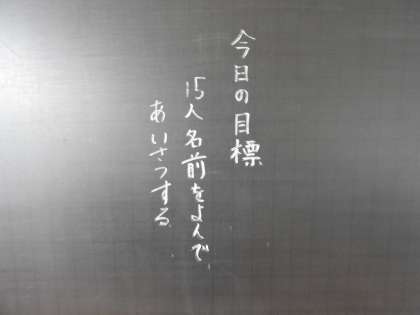 今日の目標
15人名前をよんで
あいさつする